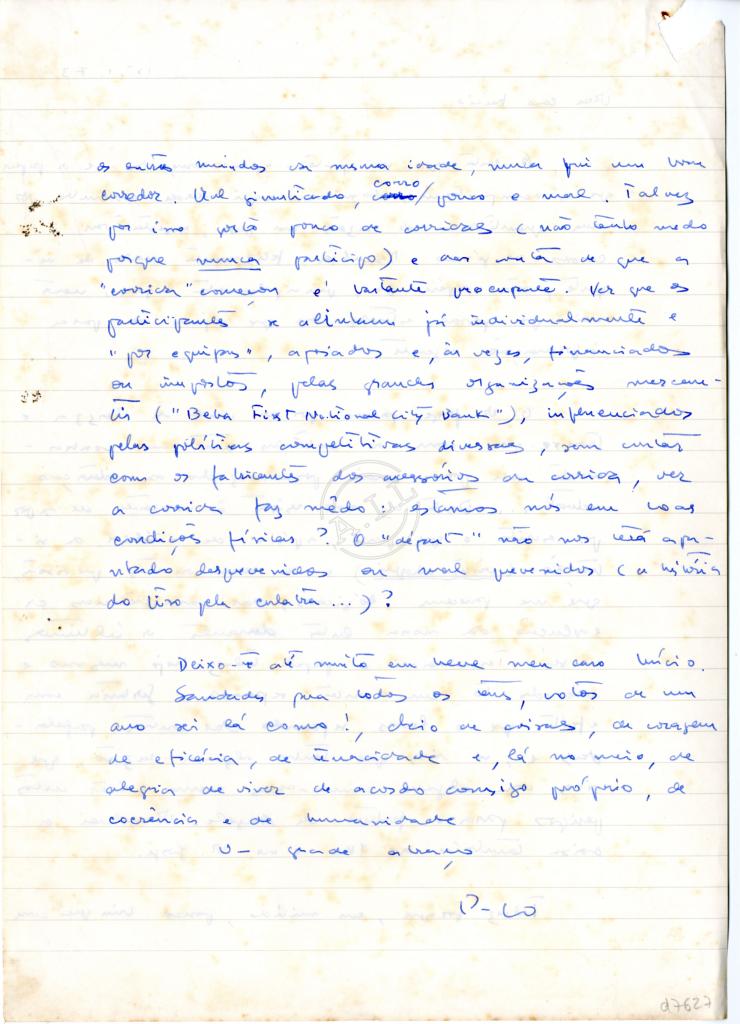 os outros miúdos da mesma idade, nunca fui um bom
corredor. Mal ginasticado, corro pouco e mal. Talvez
por isso gosto pouco de corridas (não tenho medo
porque nunca participo) e dar conta de que a
"corrida" começou é bastante preocupante. Ver que os
participantes se alinham já individualmente e
"por equipas", apoiados e, às vezes, financiados
ou impostos, pelas grandes organizações mercan-
tis ("Beba First National City Bank"), influenciados
pelas políticas competitivas diversas, sem contar
com os fabricantes dos acessórios da corrida, ver
a corrida faz mêdo: estamos nós em boas
condições físicas? O "départ" não nos terá apa-
nhado desprevenidos ou mal prevenidos (a história
do tiro pela culatra...)?
Deixo-te até muito em breve meu caro Lúcio.
Saudades para todos os teus, votos de um
ano sei lá como!, cheio de coisas, de coragem
de eficácia, de tenacidade e, lá no meio, de
alegria de viver de acordo consigo próprio, de
coerência e de humanidade
Um grande abraço
A.I.L
d7627